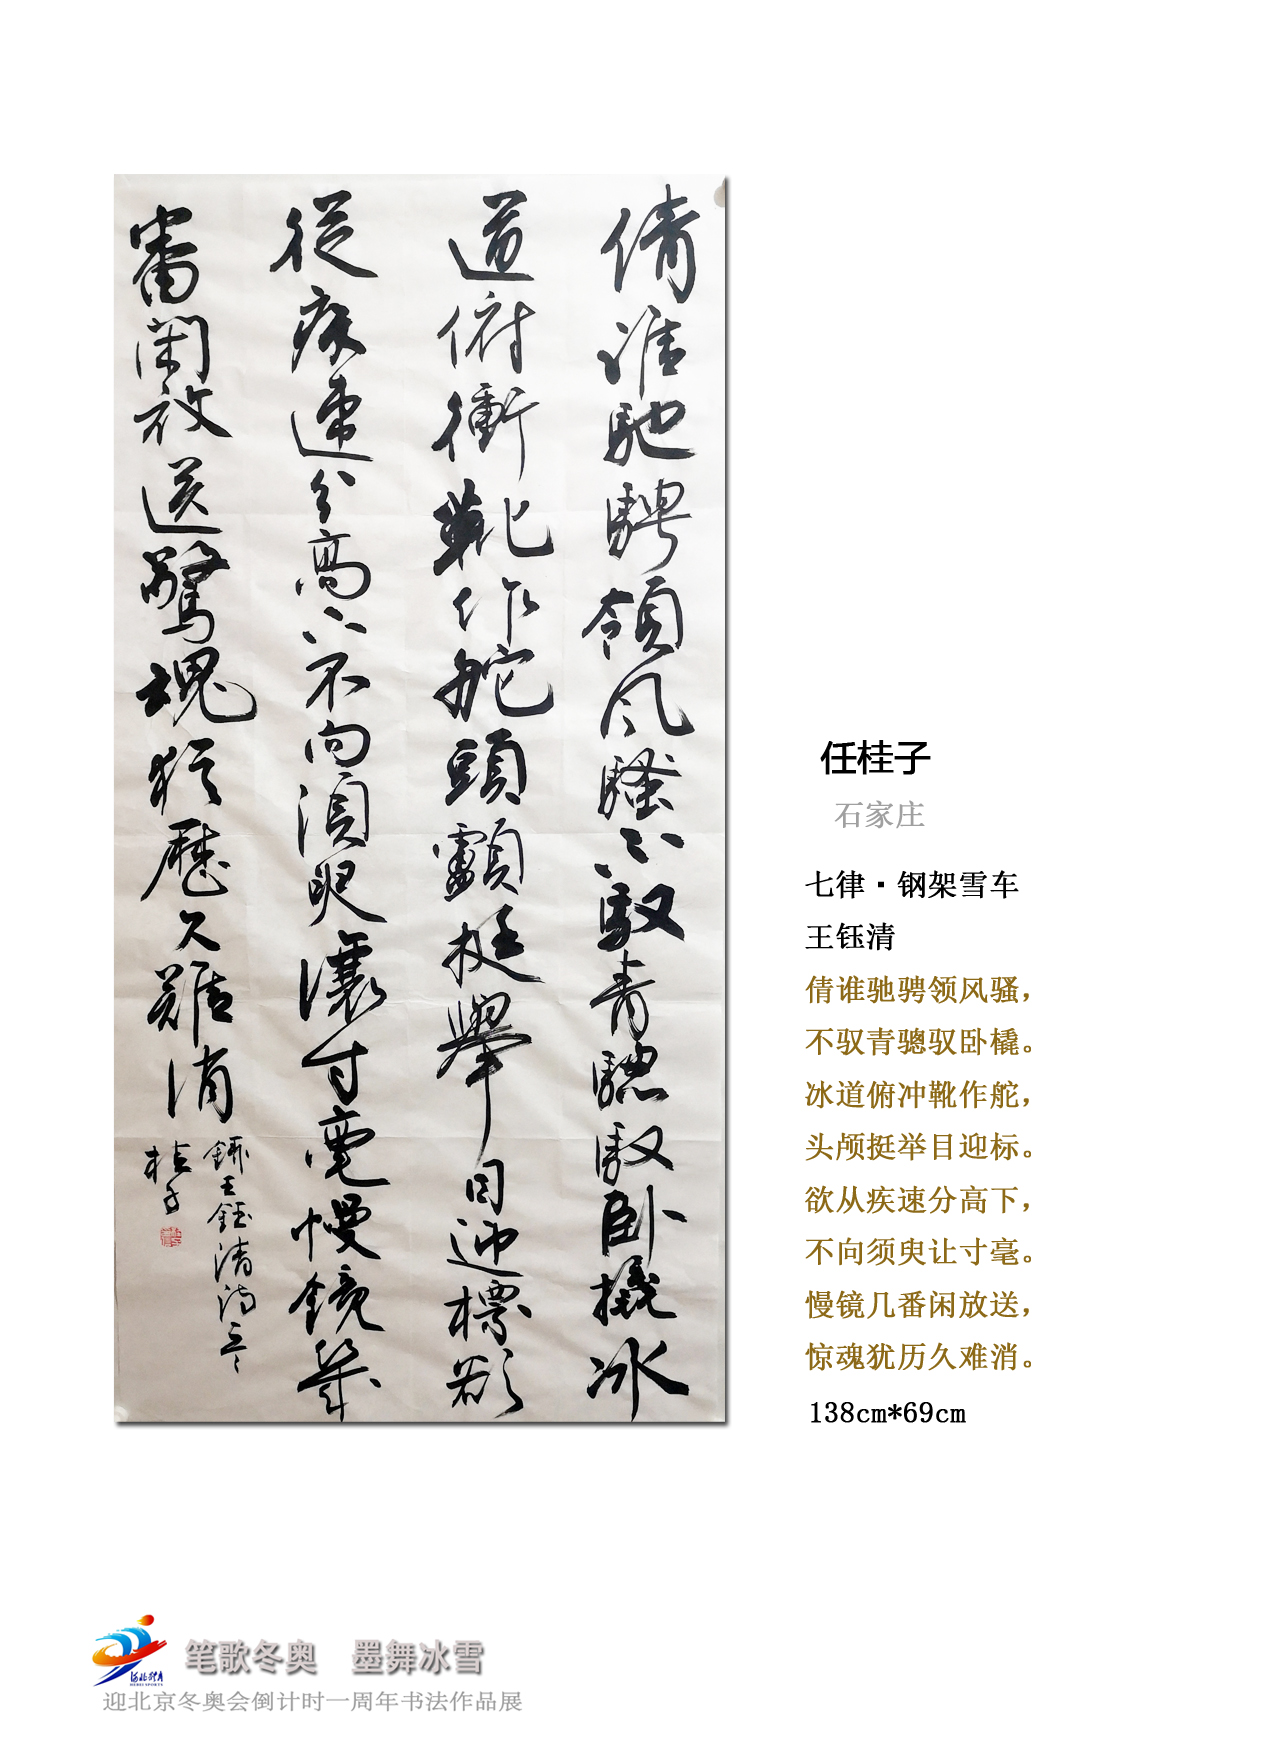 倩誰馳騁領风騷不馭青驄馭卧橇冰
道俯衝靴作舵頭顱挺舉目迎標欲
從疾速分高下不向須臾讓寸毫慢鏡幾
番閑放送驚魂猶歷久難消
錄王鈺清詩
桂子
任桂子
石家庄
七律·钢架雪车
王钰清
倩谁驰骋领风骚，
不驭青骢驭卧橇。
冰道俯冲靴作舵，
头颅挺举目迎标。
欲从疾速分高下，
不向须臾让寸毫。
慢镜几番闲放送，
惊魂犹历久难消。
138cm*69cm
河北体育
HEBEI SPORTS
笔歌冬奥 墨舞冰雪
迎北京冬奥会倒计时一周年书法作品展